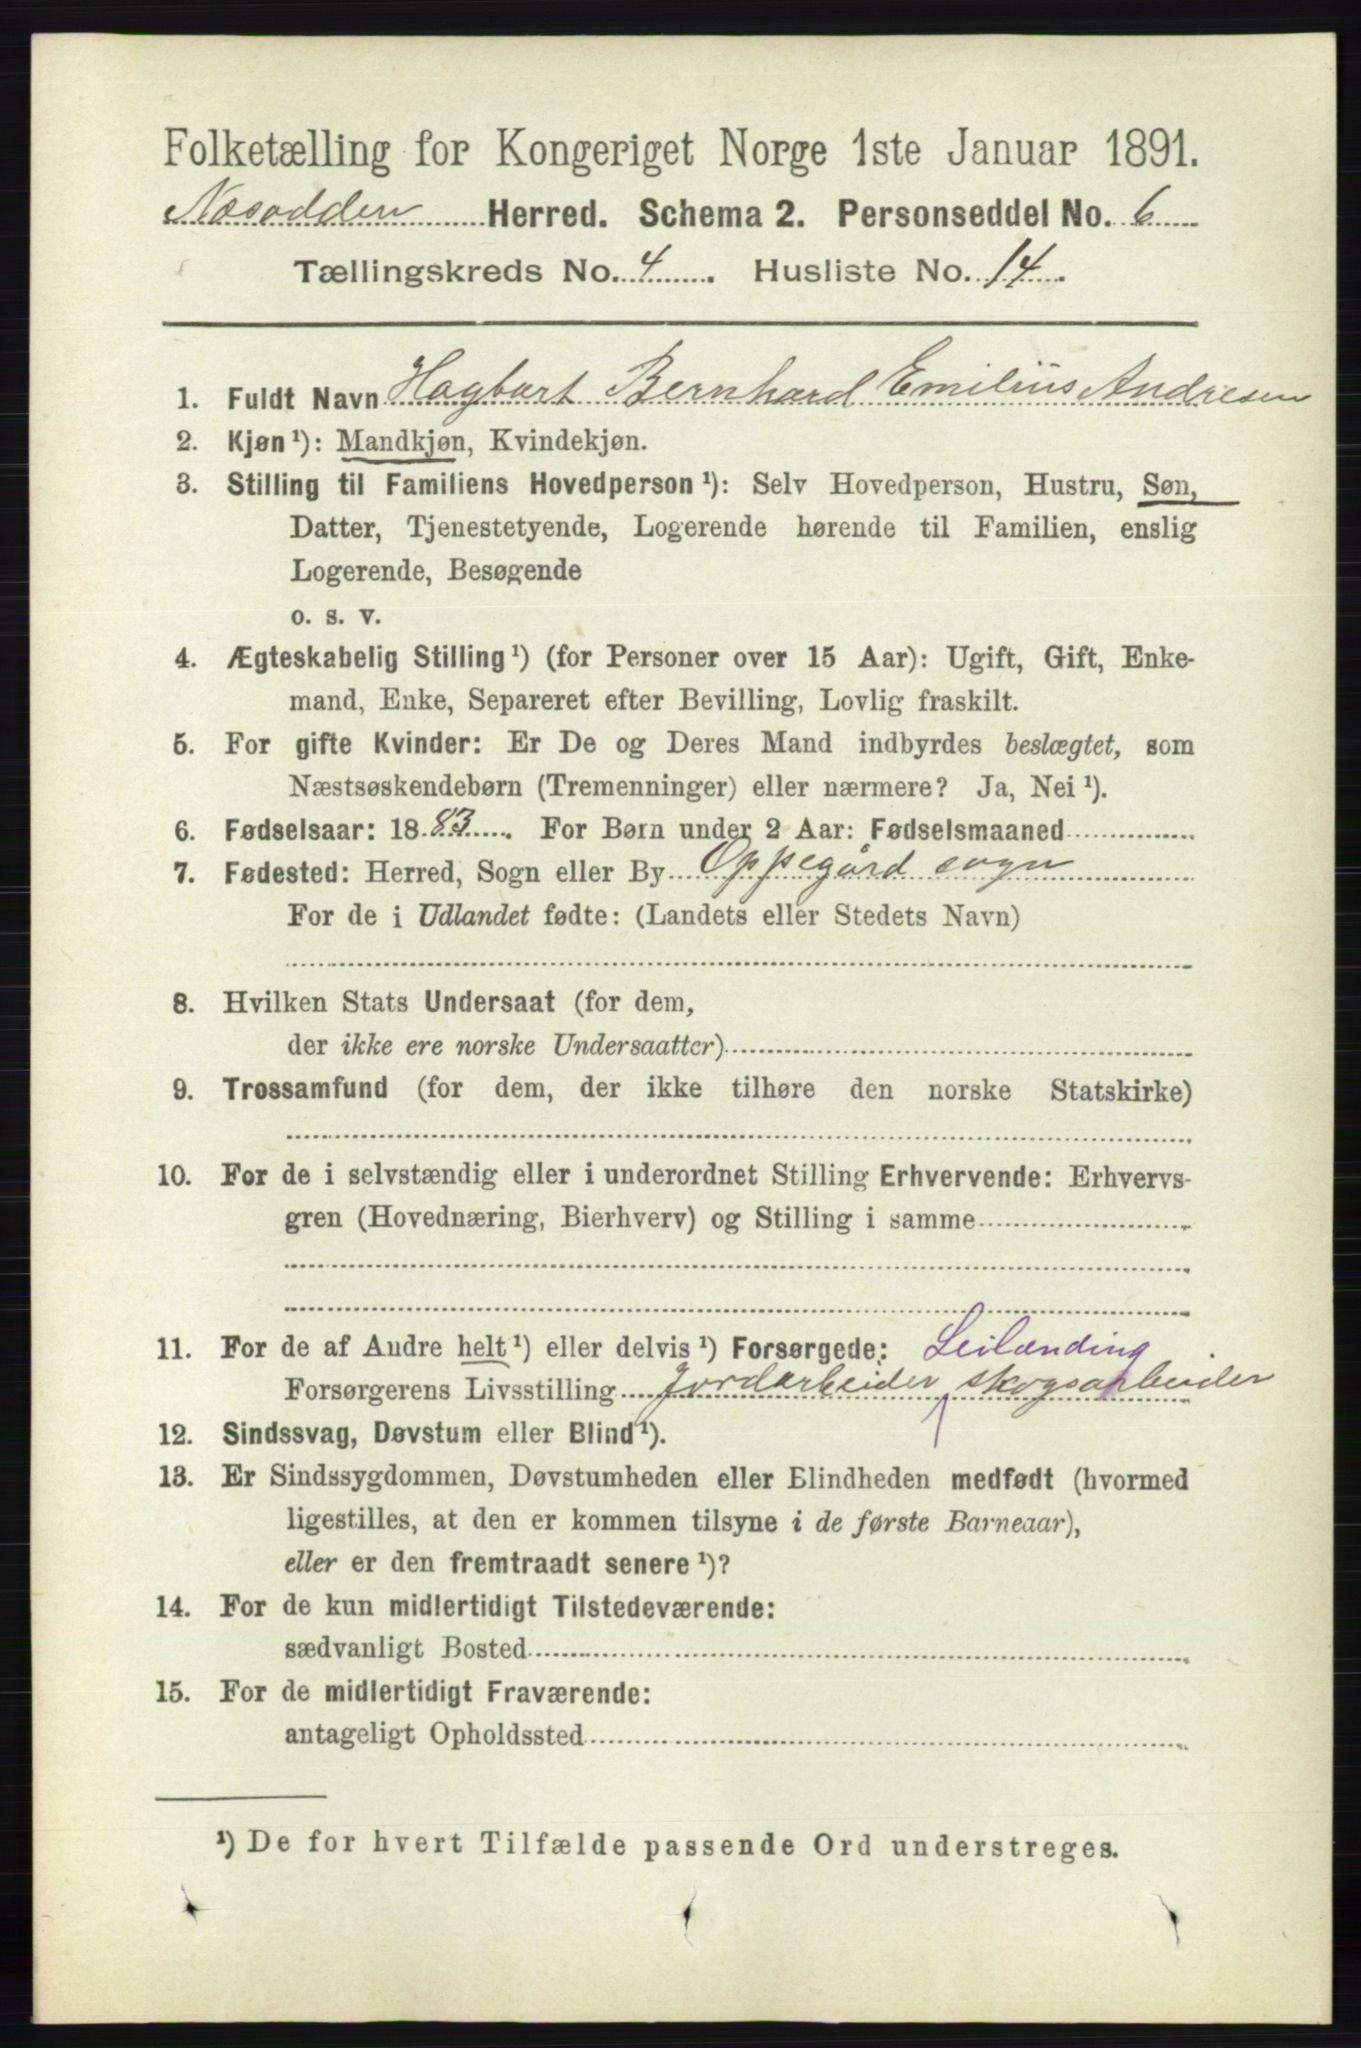 Folketælling for Kongeriget Norge 1ste Januar 1891.
Næsodden Herred. Schema 2. Personseddel No. 6
Tællingskreds No. 4. Husliste No. 14.
1. Fuldt Navn Hagbart Bernhard Emilius Andresen
2. Kjøn ¹): Mandkjøn, Kvindekjøn.
3. Stilling til Familiens Hovedperson ¹): Selv Hovedperson, Hustru, Søn,
Datter, Tjenestetyende, Logerende hørende til Familien, enslig
Logerende, Besøgende
o. s. v.
4. Ægteskabelig Stilling ¹) (for Personer over 15 Aar): Ugift, Gift, Enke-
mand, Enke, Separeret efter Bevilling, Lovlig fraskilt.
5. For gifte Kvinder: Er De og Deres Mand indbyrdes beslægtet, som
Næstsøskendebørn (Tremenninger) eller nærmere? Ja, Nei ¹).
6. Fødselsaar: 1883. For Børn under 2 Aar: Fødselsmaaned
7. Fødested: Herred, Sogn eller By Oppegård sogn
For de i Udlandet fødte: (Landets eller Stedets Navn)
8. Hvilken Stats Undersaat (for dem,
der ikke ere norske Undersaatter)
9. Trossamfund (for dem, der ikke tilhøre den norske Statskirke)
10. For de i selvstændig eller i underordnet Stilling Erhvervende: Erhvervs-
gren (Hovednæring, Bierhverv) og Stilling i samme
11. For de af Andre helt ¹) eller delvis ¹) Forsørgede: Leilænding
Forsørgerens Livsstilling Jordarbeider, skogsarbeider
12. Sindssvag, Døvstum eller Blind ¹).
13. Er Sindssygdommen, Døvstumheden eller Blindheden medfødt (hvormed
ligestilles, at den er kommen tilsyne i de første Barneaar),
eller er den fremtraadt senere ¹)?
14. For de kun midlertidigt Tilstedeværende:
sædvanligt Bosted
15. For de midlertidigt Fraværende:
antageligt Opholdssted
¹) De for hvert Tilfælde passende Ord understreges.